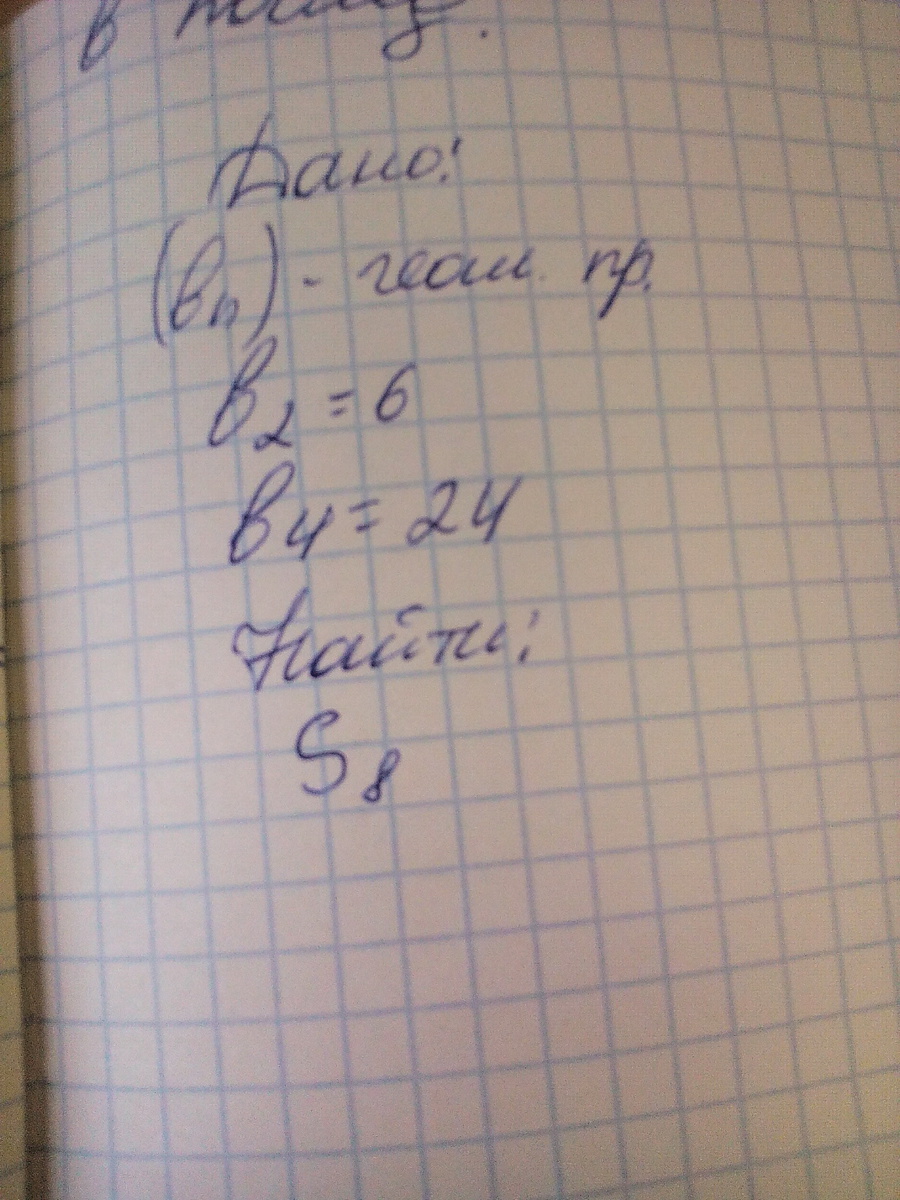 в
Дано:
(bn) - геом. пр.
b2 = 6
b4 = 24
Найти:
S8